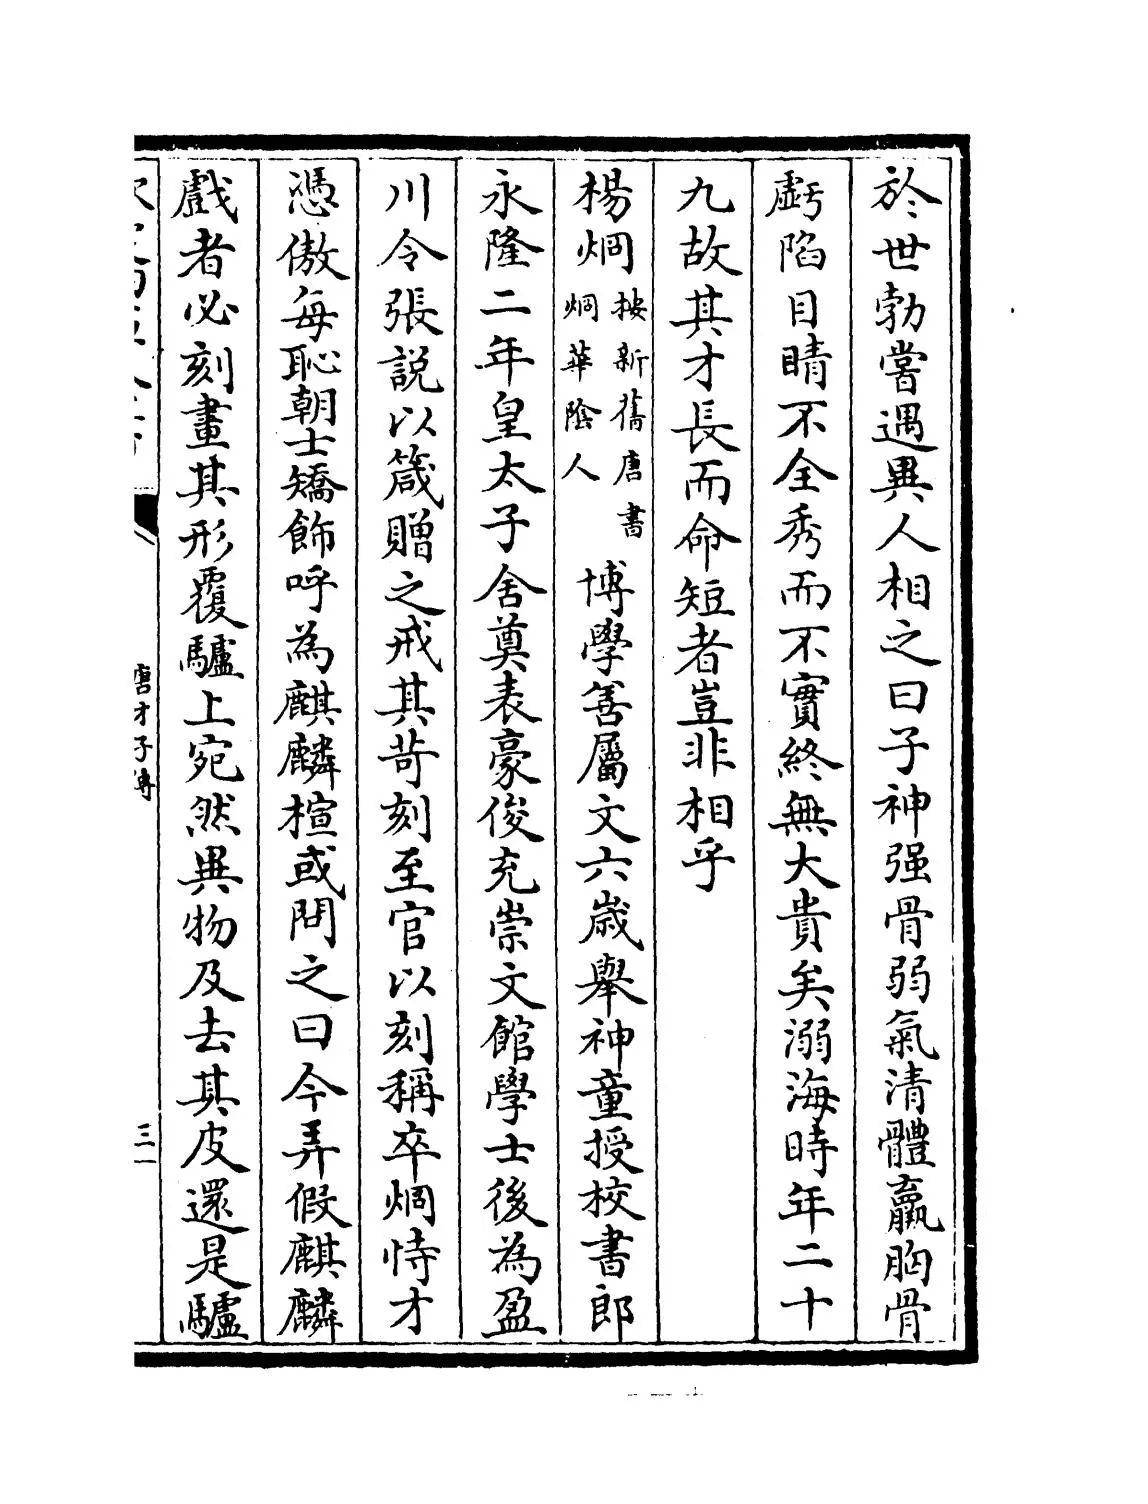 於世勃嘗遇異人相之曰子神强骨弱氣清體羸胸骨
虧陷目睛不全秀而不實終無大貴矣溺海時年二十
九故其才長而命短者豈非相乎
楊烱按新舊唐書烱華陰人博學善屬文六歲舉神童授校書郎
永隆二年皇太子舍奠表豪俊充崇文館學士後為盈
川令張說以箴贈之戒其苛刻至官以刻稱卒烱恃才
憑傲每恥朝士矯飾呼為麒麟楦或問之曰今弄假麒麟
戲者必刻畫其形覆驢上宛然異物及去其皮還是驢
唐才子傳
三